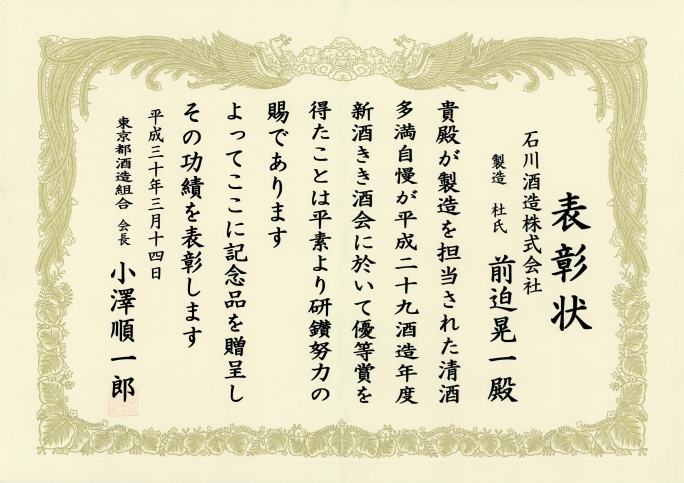 表彰状
石川酒造株式会社
製造 杜氏 前迫晃一殿
貴殿が製造を担当された清酒
多満自慢が平成二十九酒造年度
新酒きき酒会に於いて優等賞を
得たことは平素より研鑽努力の
賜であります
よってここに記念品を贈呈し
その功績を表彰します
平成三十年三月十四日
東京都酒造組合 会長 小澤順一郎